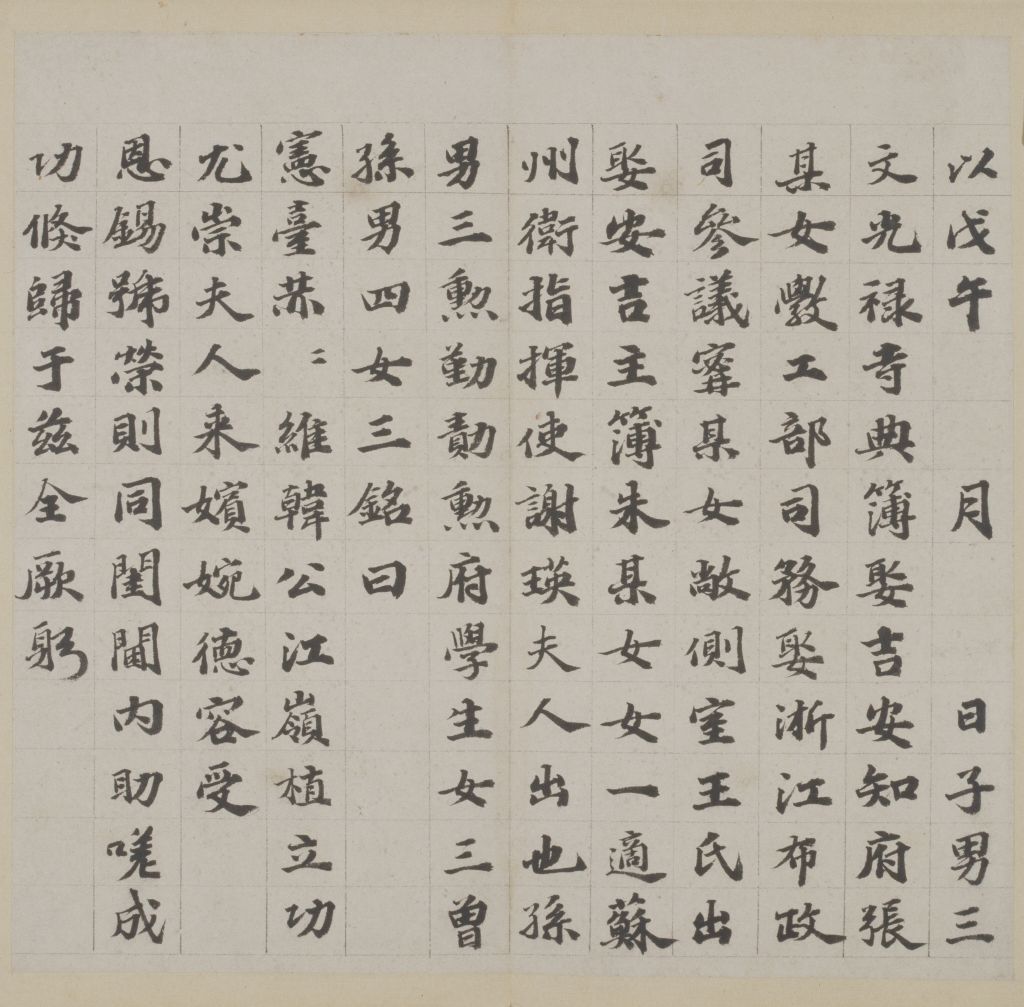 以戊午　月　日子男三
文光禄寺典簿娶吉安知府張
某女斆工部司務娶淅江布政
司參議寗某女敞側室王氏出
娶安吉主簿朱某女女一適蘇
州衛指揮使謝瑛夫人出也孫
男三勲勤勣勲府學生女三曾
孫男四女三銘曰
憲臺恭〻維韓公江嶺植立功
尤崇夫人来嬪婉德容受
恩錫號榮則同閨閫内助嗟成
功倏歸于兹全厥躬